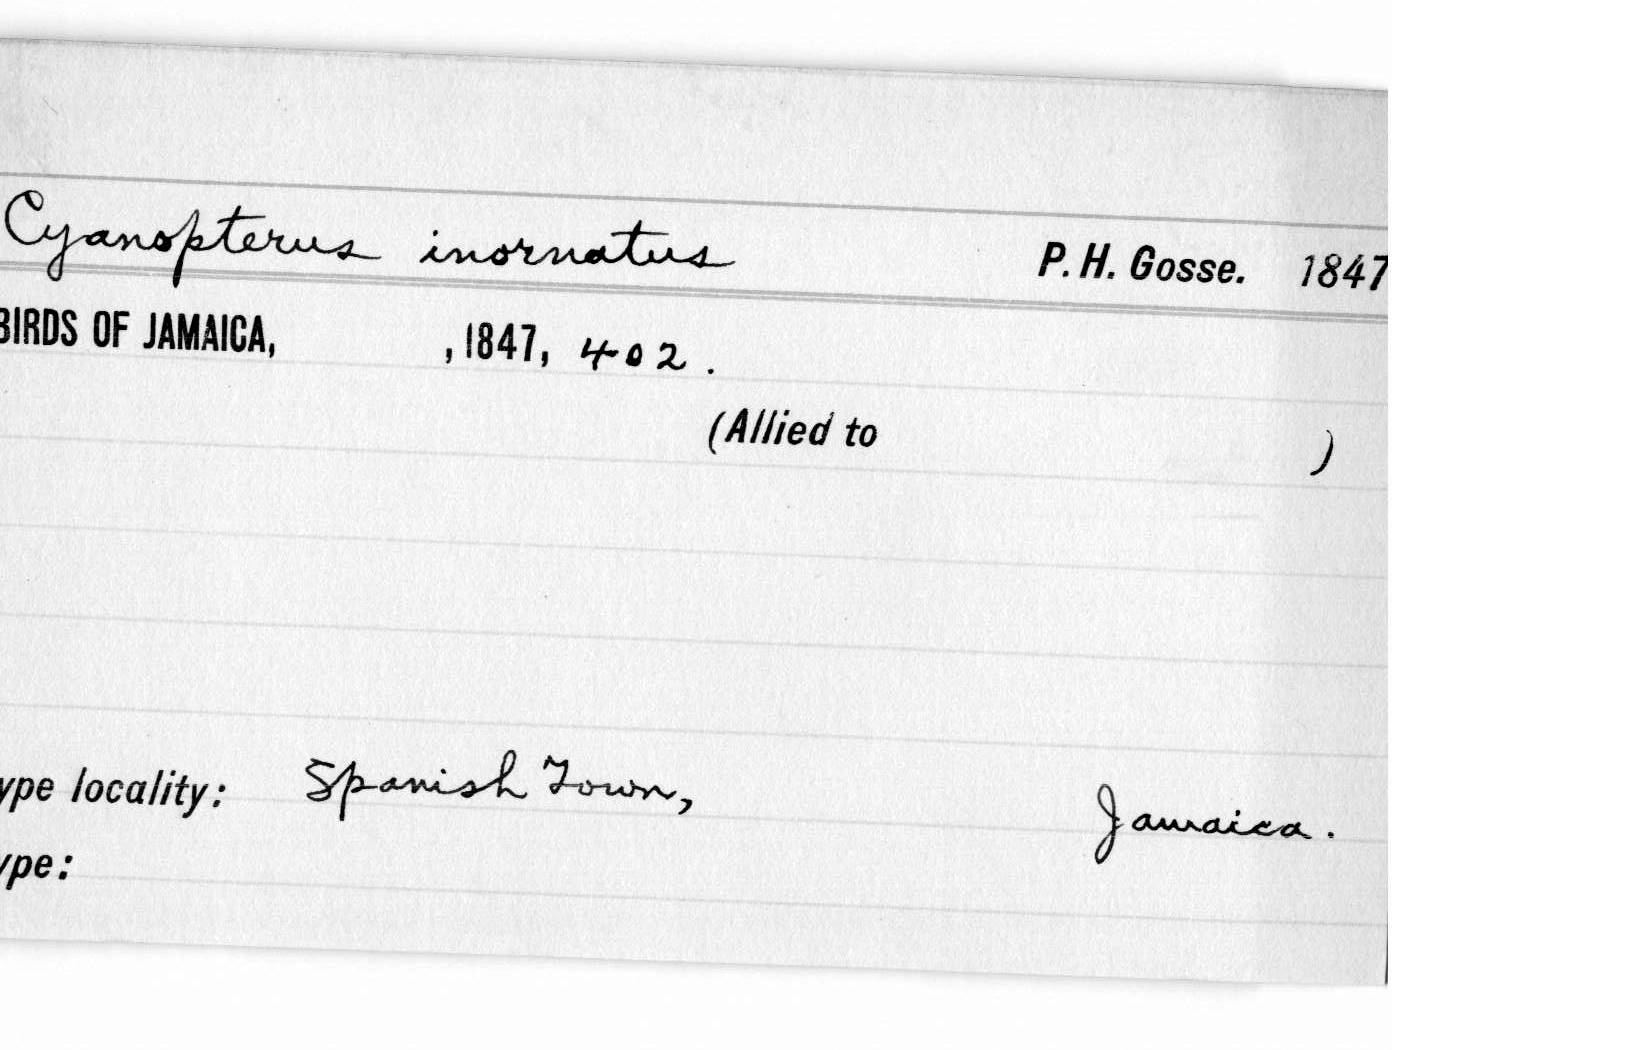 Cyanopterus inornatus P. H. Gosse. 1847
BIRDS OF JAMAICA, , 1847, 402.
(Allied to )
ype locality: Spanish Town, Jamaica.
ype: